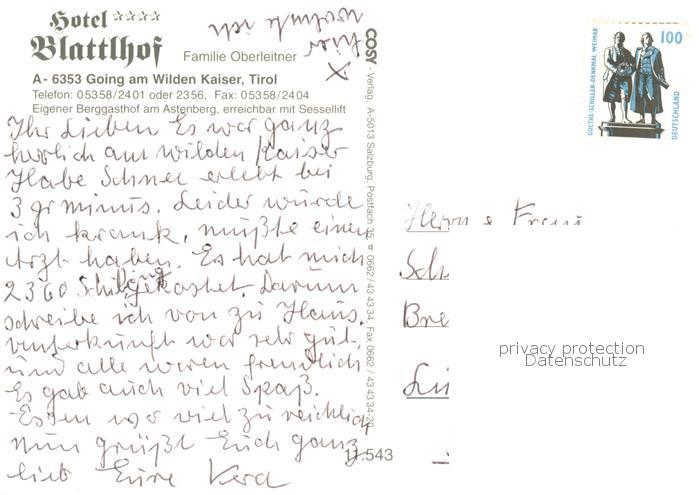 Hotel ****
Blattlhof
Familie Oberleitner
A - 6353 Going am Wilden Kaiser, Tirol
Telefon: 05358/2401 oder 2356, Fax: 05358/2404
Eigener Berggasthof am Astenberg, erreichbar mit Sessellift
X hier
wohnte ich
Ihr Lieben Es war ganz
herrlich am wilden Kaiser
Habe Schnee erlebt bei
3 gr minus. Leider wurde
ich krank, mußte einen
Arzt haben. Es hat mich
2360 Schilling gekostet. Darum
schreibe ich von zu Haus.
Unterkunft war sehr gut,
und alle waren freundlich
Es gab auch viel Spaß.
Essen war viel zu reichlich
nun grüßt Euch ganz
lieb Eure Vera
COSY - Verlag, A-5013 Salzburg, Postfach 35, ☎ 0662/43 43 34, Fax 0662/43 43 34-20
11.543
GOETHE-SCHILLER-DENKMAL WEIMAR
100
DEUTSCHLAND
Herrn u Frau
Sch
Bre
privacy protection
Datenschutz